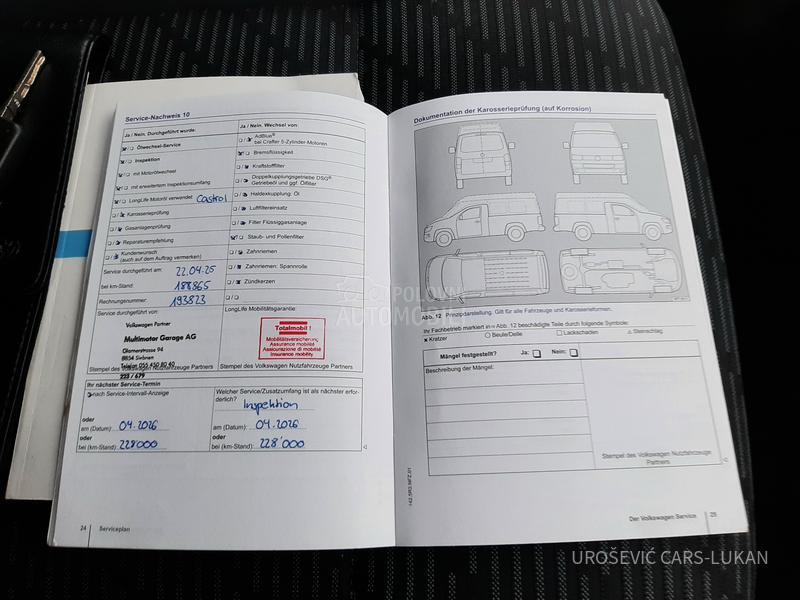 Service-Nachweis 10
Ja / Nein. Durchgeführt wurde:
Ölwechsel-Service
Inspektion
mit Motorölwechsel
mit erweitertem Inspektionsumfang
LongLife Motoröl verwendet: Castrol
Karosserieprüfung
Gasanlagenprüfung
Reparaturempfehlung
Kundenwunsch
(auch auf dem Auftrag vermerken)
Service durchgeführt am: 22.04.25
bei km-Stand: 188865
Rechnungsnummer: 193823
Service durchgeführt von:
Volkswagen Partner
Multimotor Garage AG
Glarnerstrasse 94
8854 Siebnen
Telefon 055 450 80 40
223 / 679
Stempel des Volkswagen Nutzfahrzeuge Partners
Ja / Nein. Wechsel von:
AdBlue®
bei Crafter 5-Zylinder-Motoren
Bremsflüssigkeit
Kraftstofffilter
Doppelkupplungsgetriebe DSG®
Getriebeöl und ggf. Ölfilter
Haldexkupplung: Öl
Luftfiltereinsatz
Filter Flüssiggasanlage
Staub- und Pollenfilter
Zahnriemen
Zahnriemen: Spannrolle
Zündkerzen
LongLife Mobilitätsgarantie:
Totalmobil !
Mobilitätsversicherung
Assurance mobilité
Assicurazione di mobilità
Insurance mobility
Stempel des Volkswagen Nutzfahrzeuge Partners
Ihr nächster Service-Termin
nach Service-Intervall-Anzeige
oder
am (Datum): 04.2026
oder
bei (km-Stand): 228'000
Welcher Service/Zusatzumfang ist als nächster erforderlich?
Inspektion
am (Datum): 04.2026
oder
bei (km-Stand): 228'000
24 Serviceplan
Dokumentation der Karosserieprüfung (auf Korrosion)
Abb. 12 Prinzipdarstellung. Gilt für alle Fahrzeuge und Karosserieformen.
Ihr Fachbetrieb markiert in ⇒ Abb. 12 beschädigte Teile durch folgende Symbole:
× Kratzer ○ Beule/Delle □ Lackschaden △ Steinschlag
Mängel festgestellt? Ja: Nein:
Beschreibung der Mängel:
Stempel des Volkswagen Nutzfahrzeuge
Partners
142.5R3.NFZ.01
Der Volkswagen Service 25
POLOVNI
AUTOMOBILI
UROŠEVIĆ CARS-LUKAN